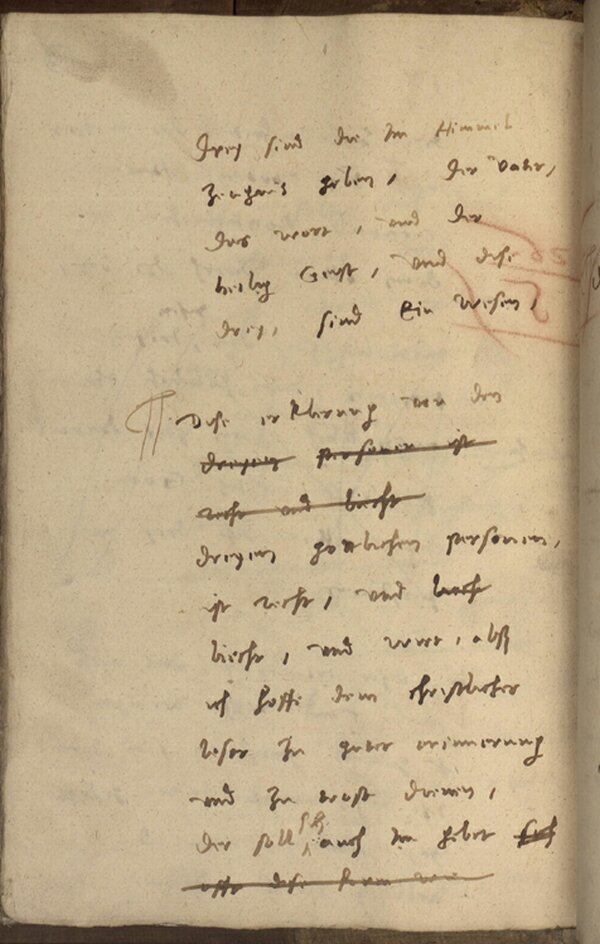 Drey sind die Im Himmel
Zeugnis geben, Der Vater,
das wort, und der
heilig Geist, und dise
drey, sind Ein wesen,
Dise erklerung von den
dreyen personen ist
recht und liecht
dreyen gottlichen personen,
ist recht, und liecht
liecht, und wirt, alß
ich hoffe dem christlicher
leser zu guter erinnerung
und zu trost dienen,
Der soll sich auch im gebet sich
offt dise form von